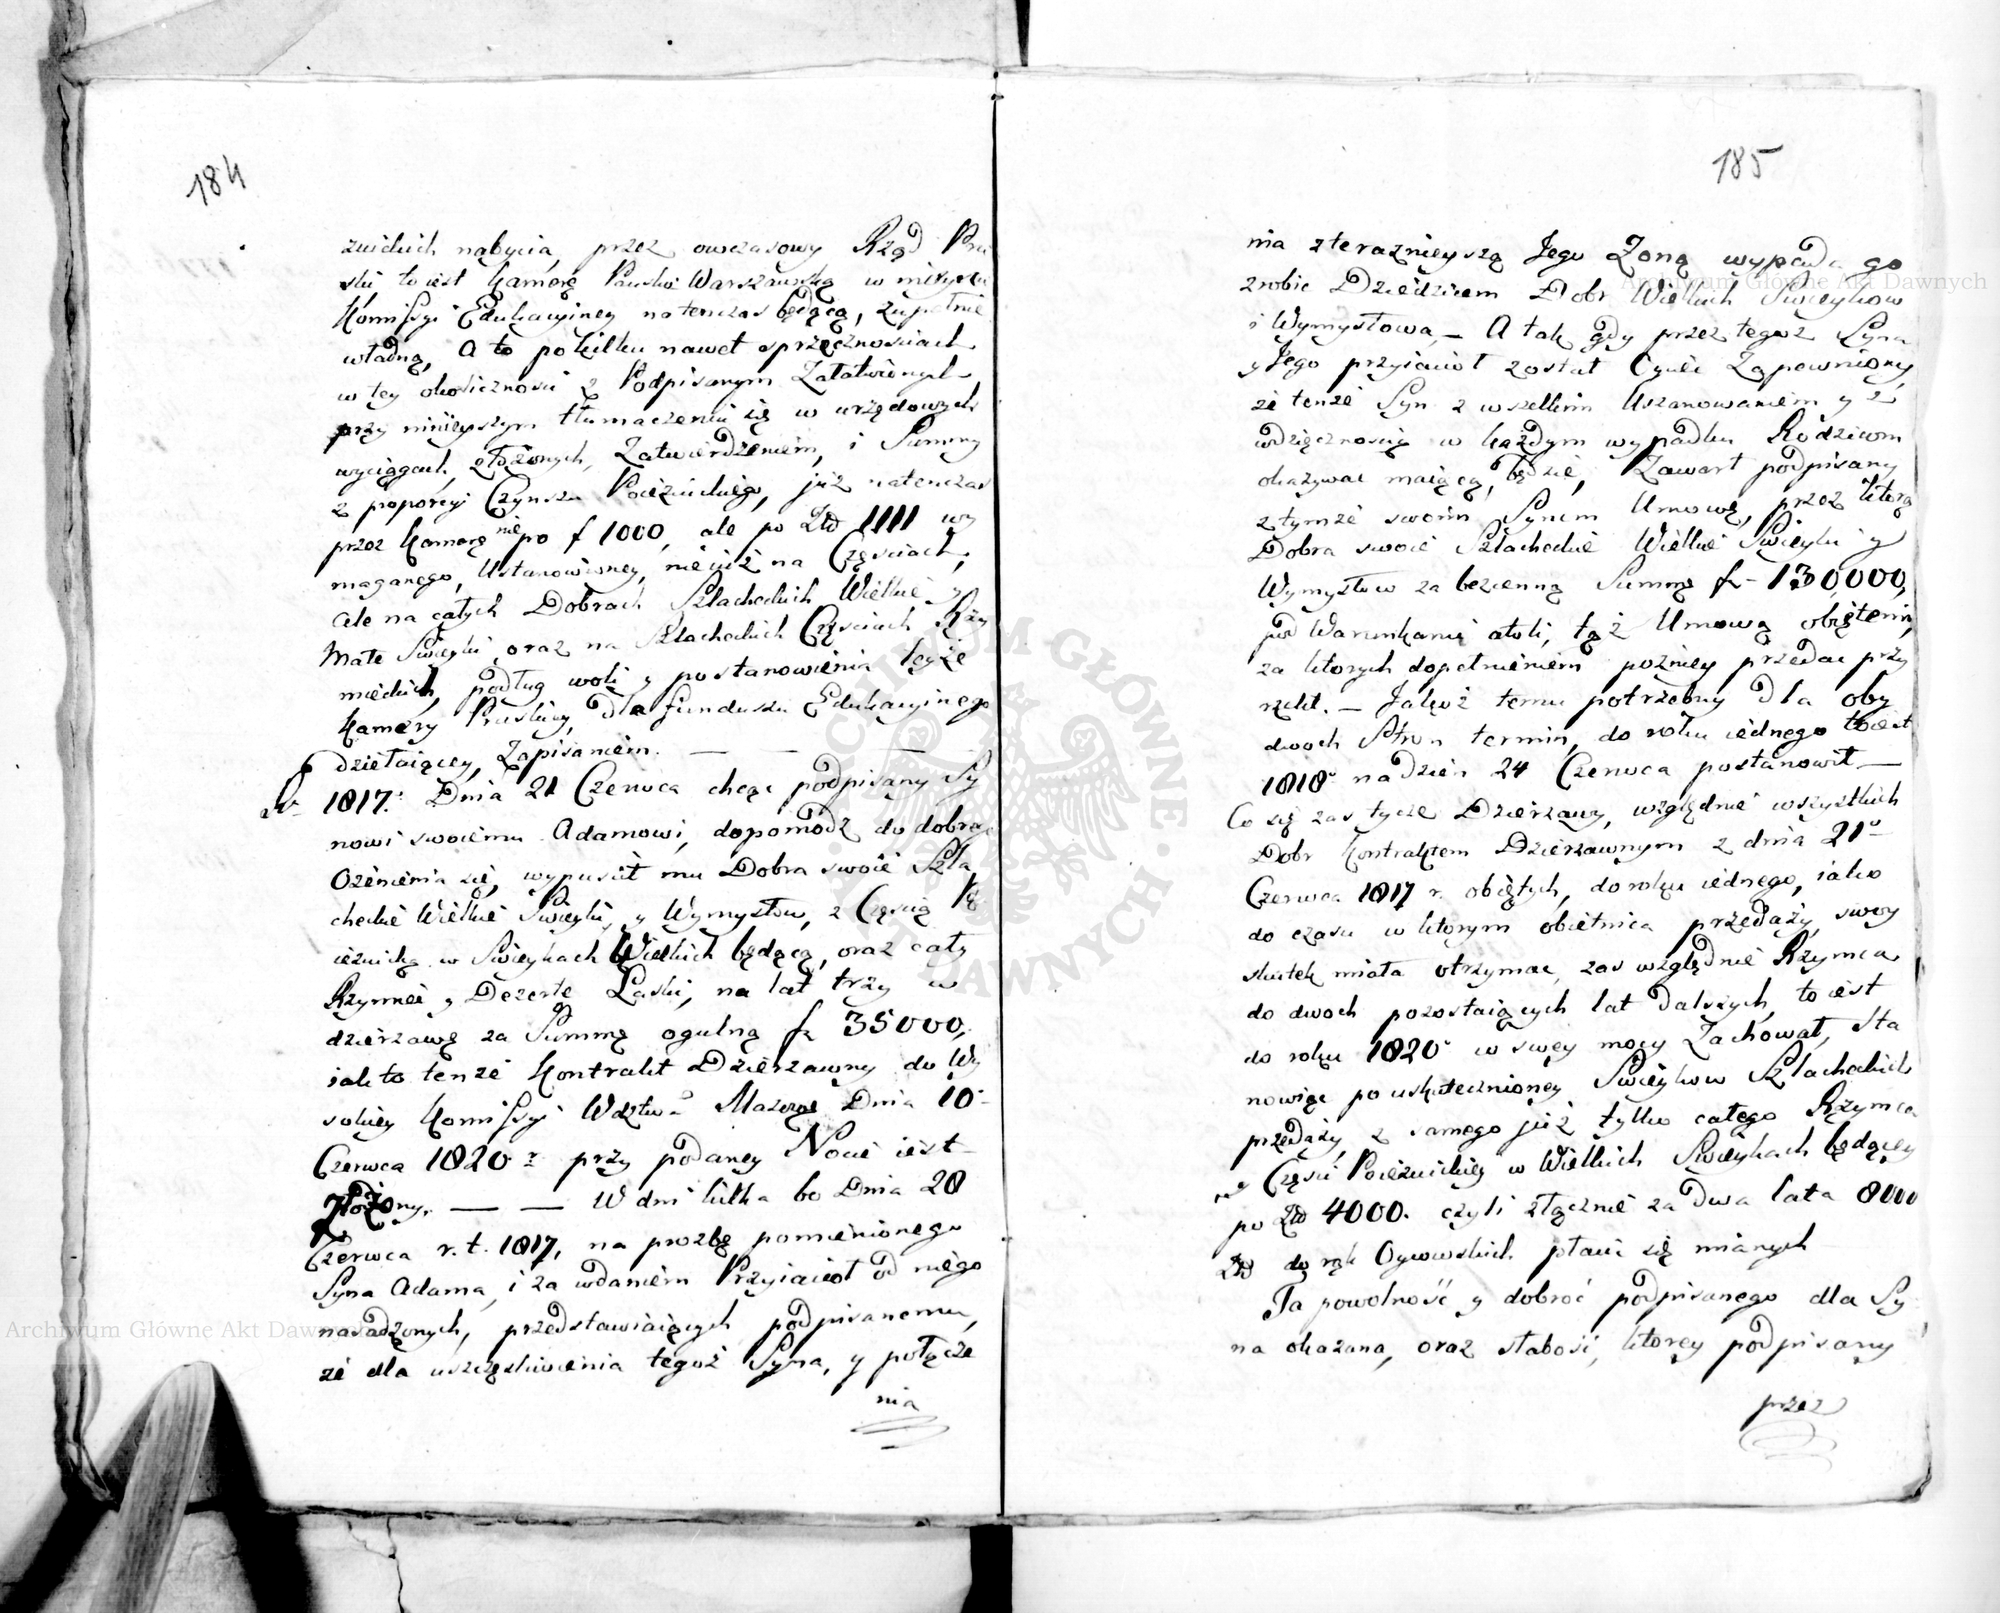 184
zuickich nabycia, przez owczasowy Rząd Pru
ski to iest Kamerę Pruską Warszawską w mieyscu
Komissyi Edukacyiney natenczas będącą, zupełnie
władną, A to po kilku nawet sprzecznościach
w tey okoliczności z Podpisanym Załatwionych
przy ninieyszym tłumaczeniu się w urzędowych
wyciągach złożonych, Zatwierdzeniem, i Summy
z proporcyi Czynszu Poiezuickiego, już natenczas
przez Kamerę nie po f 1000, ale po Złł 1111 wy
maganego, Ustanowioney, nie iuż na Częściach,
ale na całych Dobrach Szlacheckich Wielkie y
Małe Święyki, oraz na Szlacheckich Częściach Rży
mieckich, podług woli y postanowienia teyże
Kamery Pruskiey, dla funduszu Edukacyinego
działaiącey, Zapisaniem. — — — —
1817. Dnia 21 Czerwca chcąc podpisany Sy
nowi swoiemu Adamowi, dopomódz do dobrego
Ożenienia się, wypuścił mu Dobra swoie Szla
checkie Wielkie Swięyki, y Wymysłow, z Częścią Po
iezuicką w Swięykach Wielkich będącą, oraz cały
Rzymiec y Dezerte Laski, na lat trzy w
dzierzawę za Summę ogulną f 35000,
iak to tenże Kontrakt Dzierzawny do Wy
sokiey Komissyi Wdztwa Mazow: Dnia 10
Czerwca 1820 r przy podaney Nocie iest
złożony. — — W dni kilka bo Dnia 28
Czerwca r. t. 1817, na prozbę pomienionego
Syna Adama, i za wdaniem Przyiacioł od niego
nasadzonych, przedstawiaiących podpisanemu,
że dla uszczęśliwienia tegoż Syna, y połącze
nia
185
nia z teraznieyszą Jego Zoną wypada go
zrobic Dziedzicem Dobr Wielkich Swięykow
i Wymysłowa, — A tak gdy przez tegoż Syna
y Jego przyiacioł został Czule Zapewniony,
że tenże Syn z wszelkim Uszanowaniem y z
wdzięcznością w każdym wypadku Rodzicom
okazywac maiącą, będzie, Zawarł podpisany
z tymże swoim Synem Umowę, przez którą
Dobra swoie Szlacheckie Wielkie Swięyki y
Wymysłow za bezcenną Summę f — 130,000,
pod Warunkami atoli, tąż Umową obiętemi,
za ktorych dopełnieniem pozniey przedac przy
rzekł. — Jakoż temu potrzebny dla oby
dwoch Stron termin, do roku iednego to iest
1818 na dzien 24 Czerwca postanowił —
Co się zas tycze Dzierzawy, względnie wszystkich
Dobr Kontraktem Dzierzawnym z dnia 21
Czerwca 1817 r. obiętych, do roku iednego, iako
do czasu w ktorym obietnica przedaży, swoy
skutek miała otrzymac, zas względnie Rzymca
do dwoch pozostaiących lat dalszych, to iest
do roku 1820 w swey mocy Zachował, Sta
nowiąc po uskutecznioney Swięykow Szlacheckich
przedaży, z samego już tylko całego Rzymca
Części Poiezuickiey w Wielkich Swięykach będącey
po Złł 4000. czyli złącznie za dwa lata 8000
Złł do rąk Oycowskich płacic się mianych
Ta powolność y dobroć podpisanego dla Sy
na okazana, oraz słabość, ktorey podpisany
przez